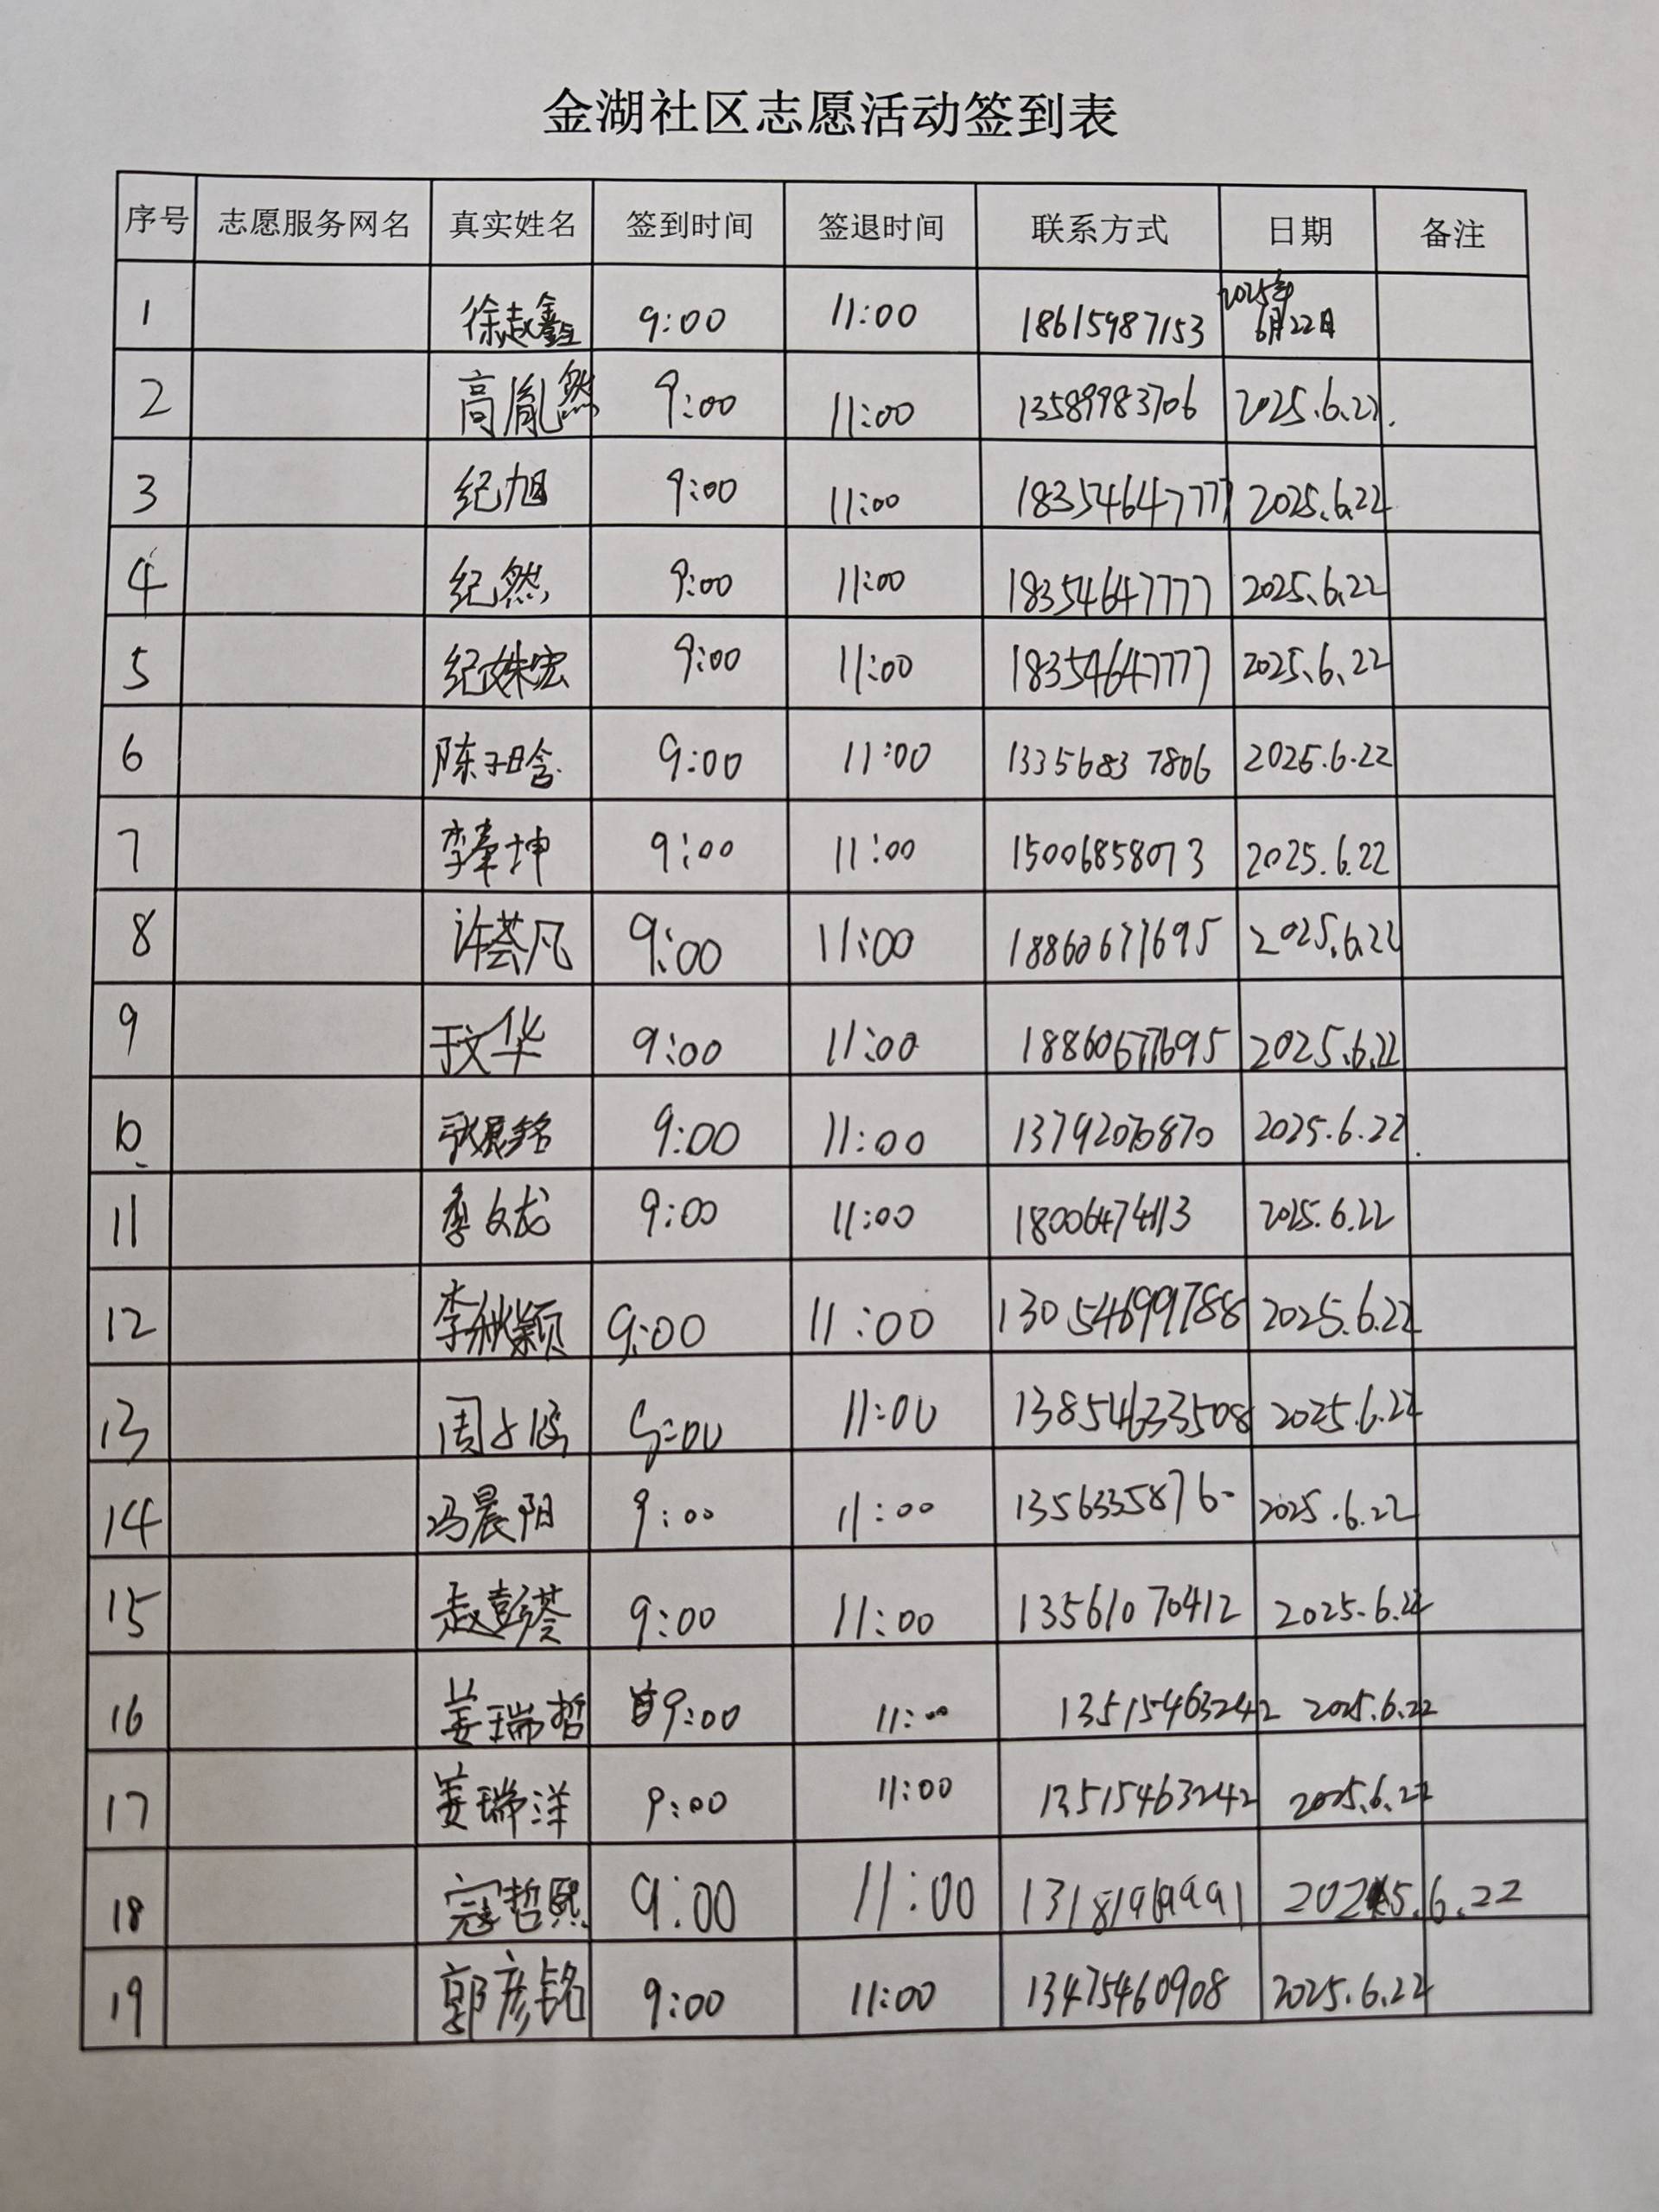 金湖社区志愿活动签到表
序号 志愿服务网名 真实姓名 签到时间 签退时间 联系方式 日期 备注
1 徐赵鑫 9:00 11:00 18615987153 2025年6月22日
2 高胤然 9:00 11:00 13589983706 2025.6.22.
3 纪旭 9:00 11:00 18354647777 2025.6.22
4 纪然 9:00 11:00 18354647777 2025.6.22
5 纪姝宏 9:00 11:00 18354647777 2025.6.22
6 陈子晗 9:00 11:00 13356837806 2025.6.22
7 李秉坤 9:00 11:00 15006858073 2025.6.22
8 许荟凡 9:00 11:00 18860677695 2025.6.22
9 于文华 9:00 11:00 18860677695 2025.6.22
10 9:00 11:00 2025.6.22.
11 文龙 9:00 11:00 18006474113 2025.6.22
12 李秋颖 9:00 11:00 13054699788 2025.6.22
13 周子涵 9:00 11:00 13854633508 2025.6.22
14 冯晨阳 9:00 11:00 13563358760 2025.6.22
15 赵彭荟 9:00 11:00 13561070412 2025.6.22
16 姜瑞哲 9:00 11:00 13515463242 2025.6.22
17 姜瑞洋 9:00 11:00 13515463242 2025.6.22
18 寇哲熙 9:00 11:00 13181969991 2025.6.22
19 郭彦铭 9:00 11:00 13475460908 2025.6.22